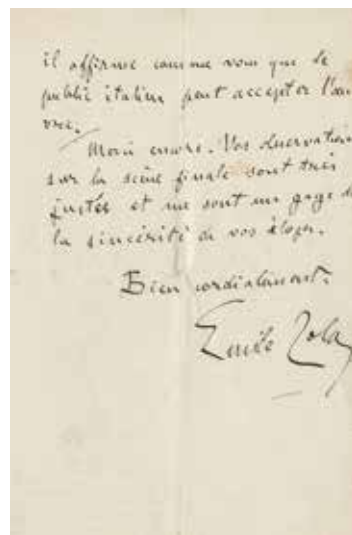 il affirme comme vous que le
public italien peut accepter l'œu
vre.
Merci encore. Vos observations
sur la scène finale sont très
justes et me sont un gage de
la sincérité de vos éloges.
Bien cordialement.
Emile Zola